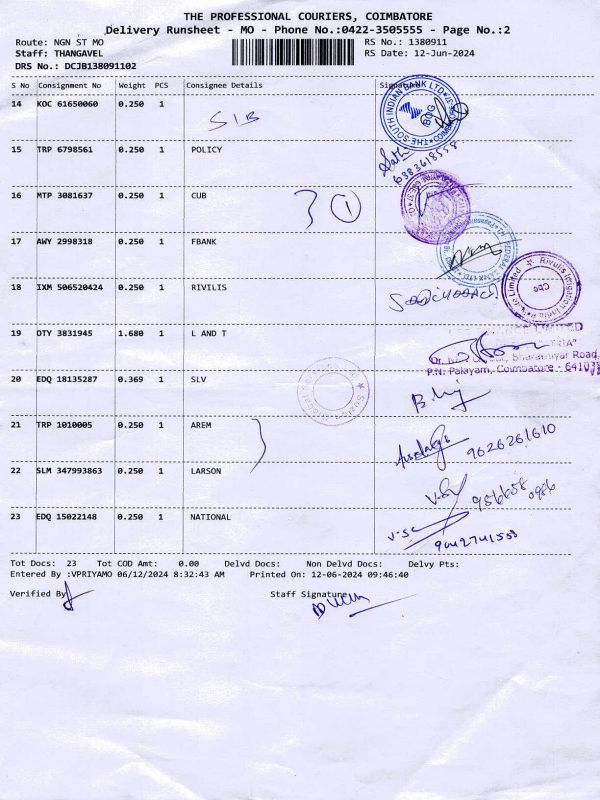 THE PROFESSIONAL COURIERS, COIMBATORE
Delivery Runsheet - MO - Phone No.:0422-3505555 - Page No.:2
Route: NGN ST MO RS No.: 1380911
Staff: THANGAVEL RS Date: 12-Jun-2024
DRS No.: DCJB138091102
S No Consignment No Weight PCS Consignee Details Signature
14 KOC 61650060 0.250 1 SIB
THE SOUTH INDIAN BANK LTD
15 TRP 6798561 0.250 1 POLICY
6383618558
16 MTP 3081637 0.250 1 CUB 1
17 AWY 2998318 0.250 1 FBANK
FEDERAL BANK LTD
18 IXM 506520424 0.250 1 RIVILIS
Rivulis Irrigation India Private Limited
CBE
19 OTY 3831945 1.680 1 L AND T
LIMITED
Bharathiyar Road,
P.N. Palayam, Coimbatore - 641037
20 EDQ 18135287 0.369 1 SLV
21 TRP 1010005 0.250 1 AREM 9626261610
22 SLM 347993863 0.250 1 LARSON 986658 0986
23 EDQ 15022148 0.250 1 NATIONAL 9042741553
Tot Docs: 23 Tot COD Amt: 0.00 Delvd Docs: Non Delvd Docs: Delvy Pts:
Entered By :VPRIYAMO 06/12/2024 8:32:43 AM Printed On: 12-06-2024 09:46:40
Verified By Staff Signature